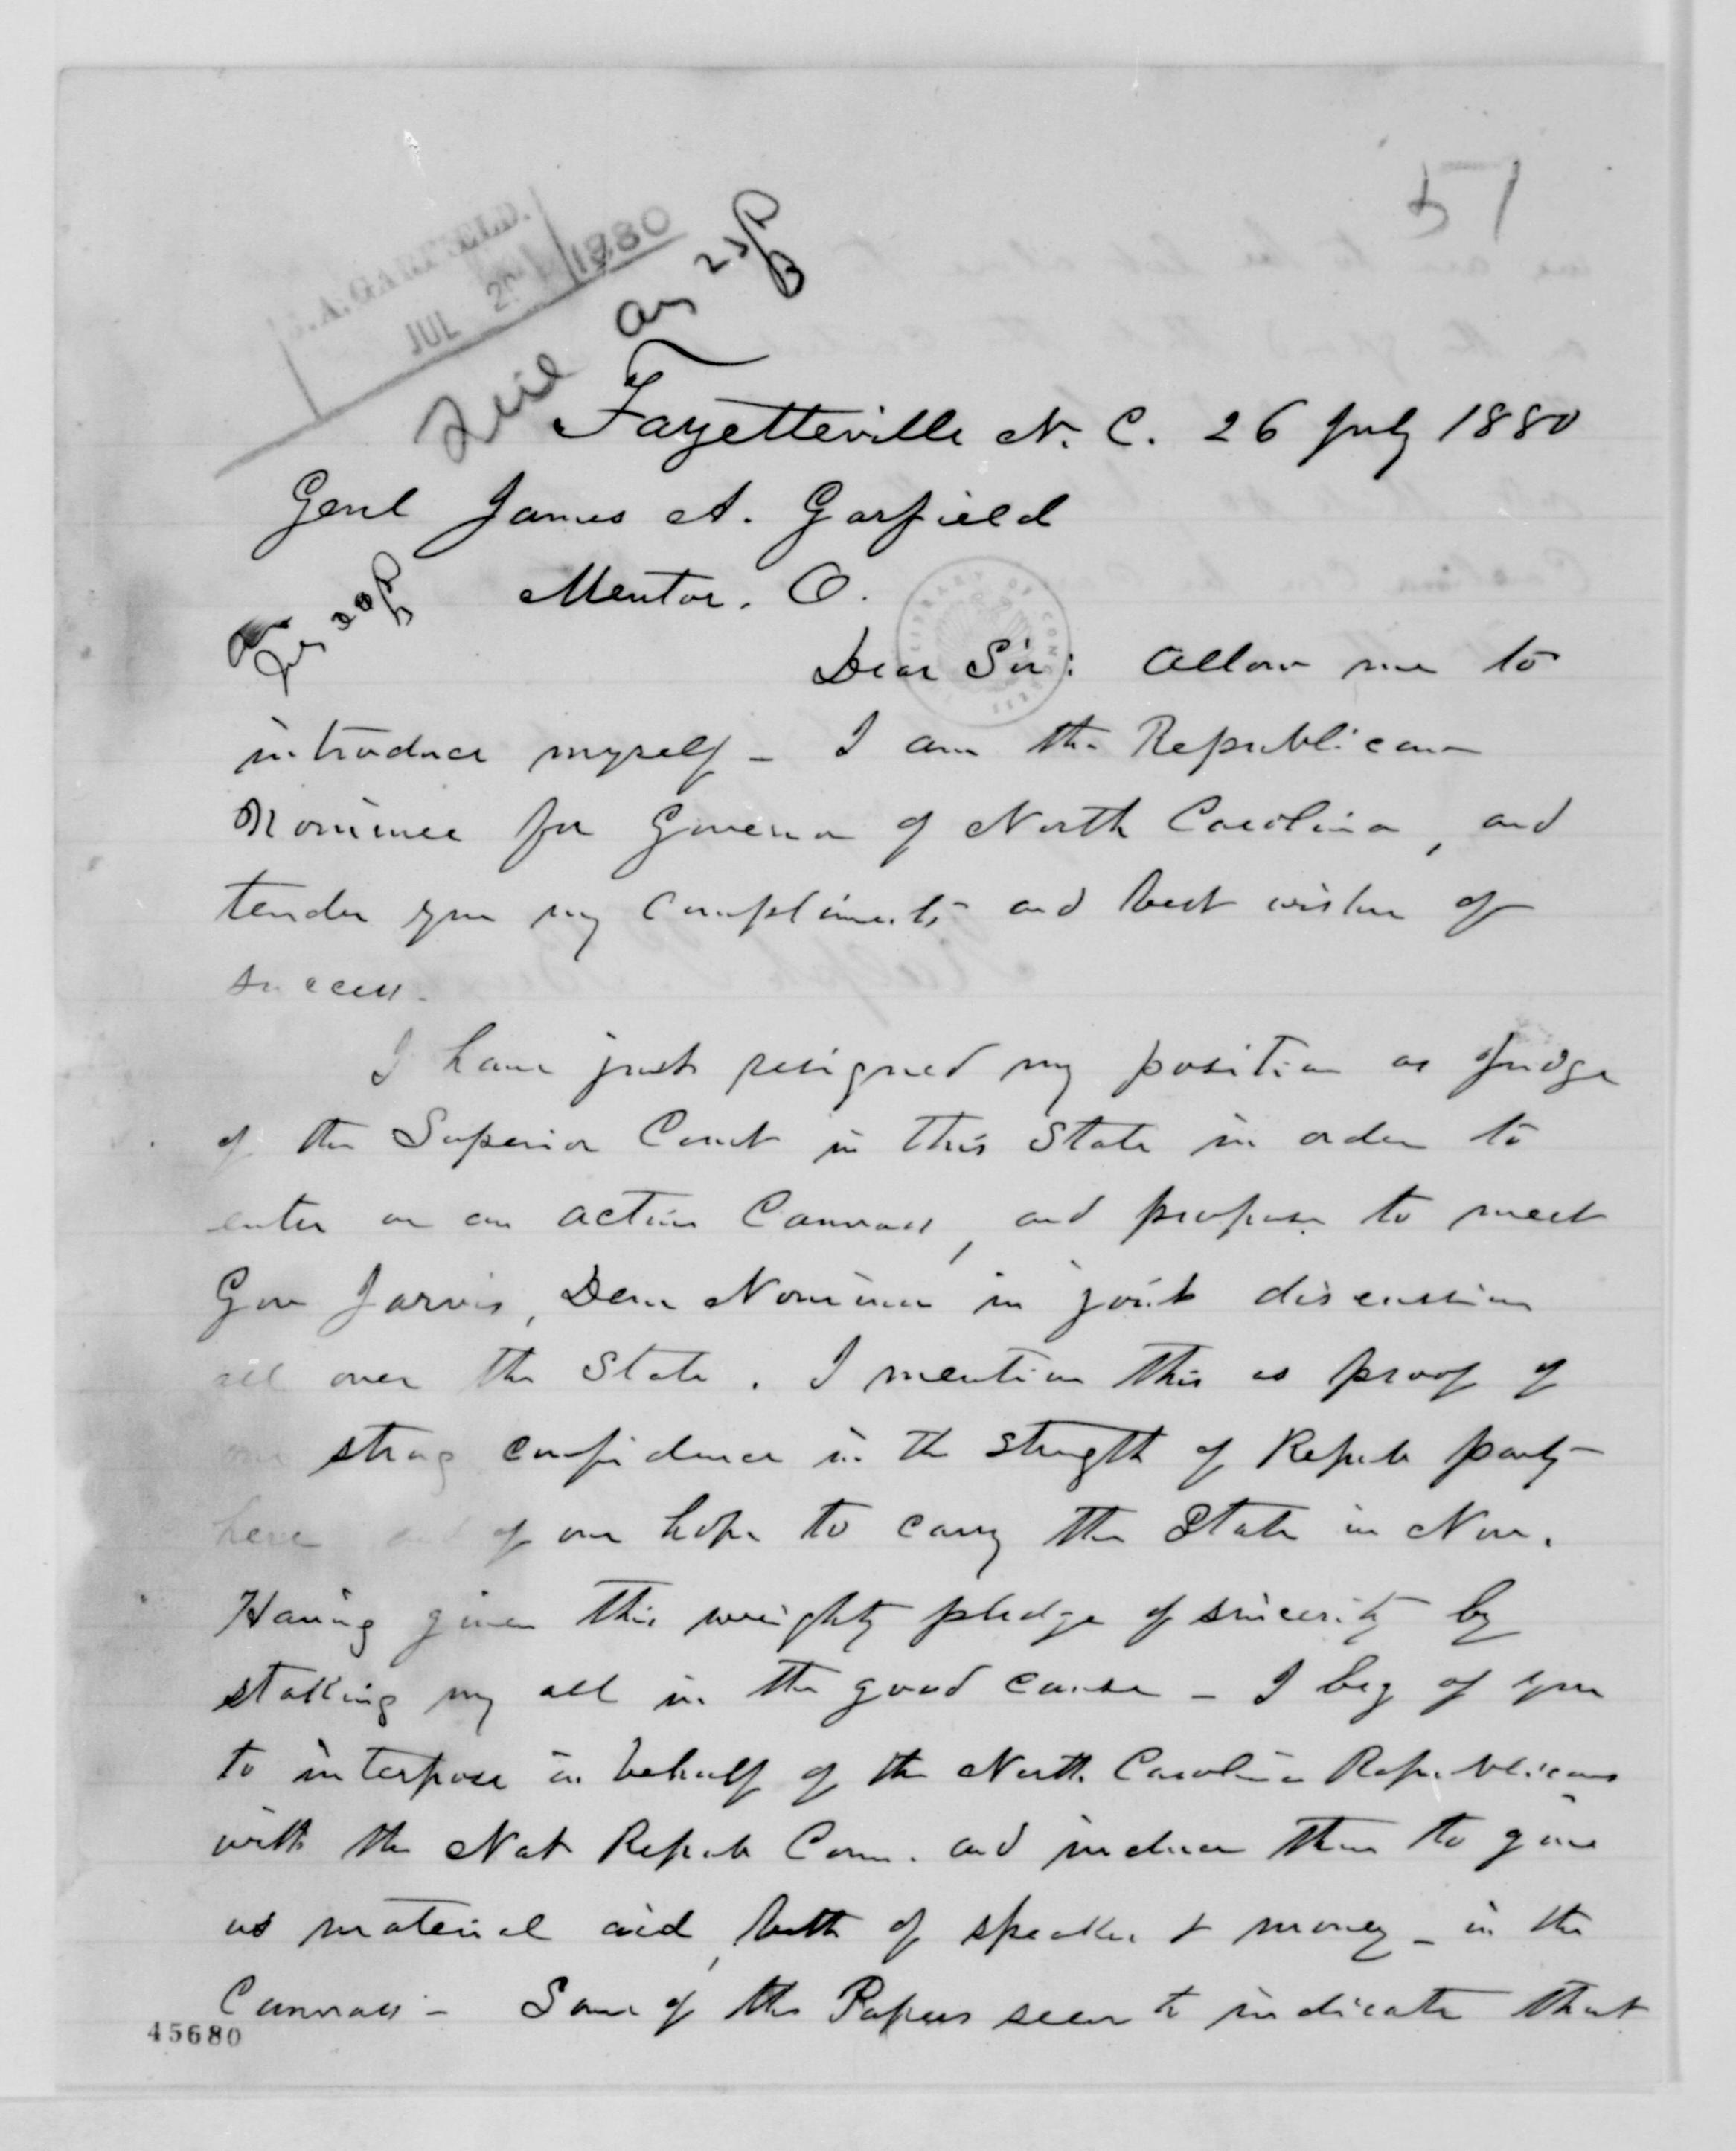 51
J. A. GARFIELD.
JUL 29 1880
Fayetteville N. C. 26 July 1880
Genl James A. Garfield
Mentor. O.
LIBRARY OF CONGRESS
Dear Sir: Allow me to
introduce myself - I am the Republican
Nominee for Governor of North Carolina, and
tender you my compliments and best wishes of
success.
I have just resigned my position as Judge
of the Superior Court in this State in order to
enter on an active Canvass, and propose to meet
Gov Jarvis, Dem Nominee in joint discussion
all over the State. I mention this as proof of
our strong confidence in the strength of Repub party
here and of our hope to carry the State in Nov.
Having given this weighty pledge of sincerity by
staking my all in the good cause - I beg of you
to interpose in behalf of the North Carolina Republicans
with the Nat Repub Com. and induce them to give
us material aid, both of speakers & money - in the
Canvass - Some of the Papers seem to indicate that
45680